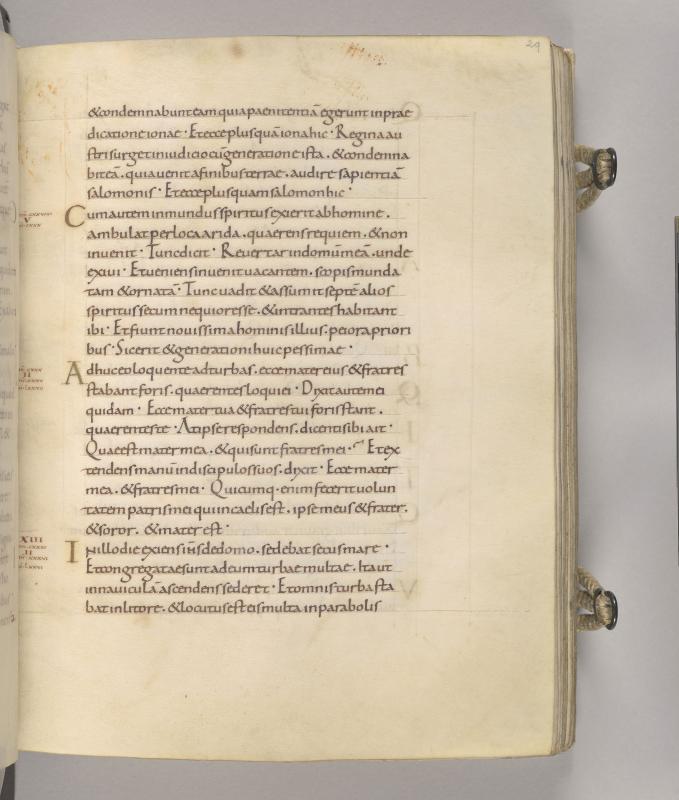 29
&condemnabunt eam quia paenitentiā egerunt in prae
dicatione ionae · Et ecce plus quā iona hic · Regina au
stri surget in iudicio cū generatione ista . & condemna
bit eā . quia uenit a finibus terrae . audire sapientiā
salomonis · Et ecce plus quam salomon hic ·
Cum autem inmundus spiritus exierit ab homine .
ambulat per loca arida . quaerens requiem . & non
inuenit · Tunc dicit · Reuertar in domū meā . unde
exiui · Et ueniens inuenit uacantem . scopis munda
tam & ornatā · Tunc uadit & assumit septē alios
spiritus secum nequiores se . & intrantes habitant
ibi · Et fiunt nouissima hominis illius . peiora priori
bus · Sic erit & generationi huic pessimae ·
Adhuc eo loquente ad turbas . ecce mater eius & fratres
stabant foris . quaerentes loqui ei · Dixit autem ei
quidam · Ecce mater tua & fratres tui foris stant .
quaerentes te · At ipse respondens . dicenti sibi ait ·
Quae est mater mea . & qui sunt fratres mei · Et ex
tendens manū in discipulos suos . dixit · Ecce mater
mea . & fratres mei · Quicumq · enim fecerit uolun
tatem patris mei qui in caelis est . ipse meus & frater .
& soror . & mater est ·
XIII
In illo die exiens ih̄s de domo . sedebat secus mare ·
Et congregatae sunt ad eum turbae multae . Ita ut
in nauiculā ascendens sederet · Et omnis turba sta
bat in litore . & locutus est eis multa in parabolis